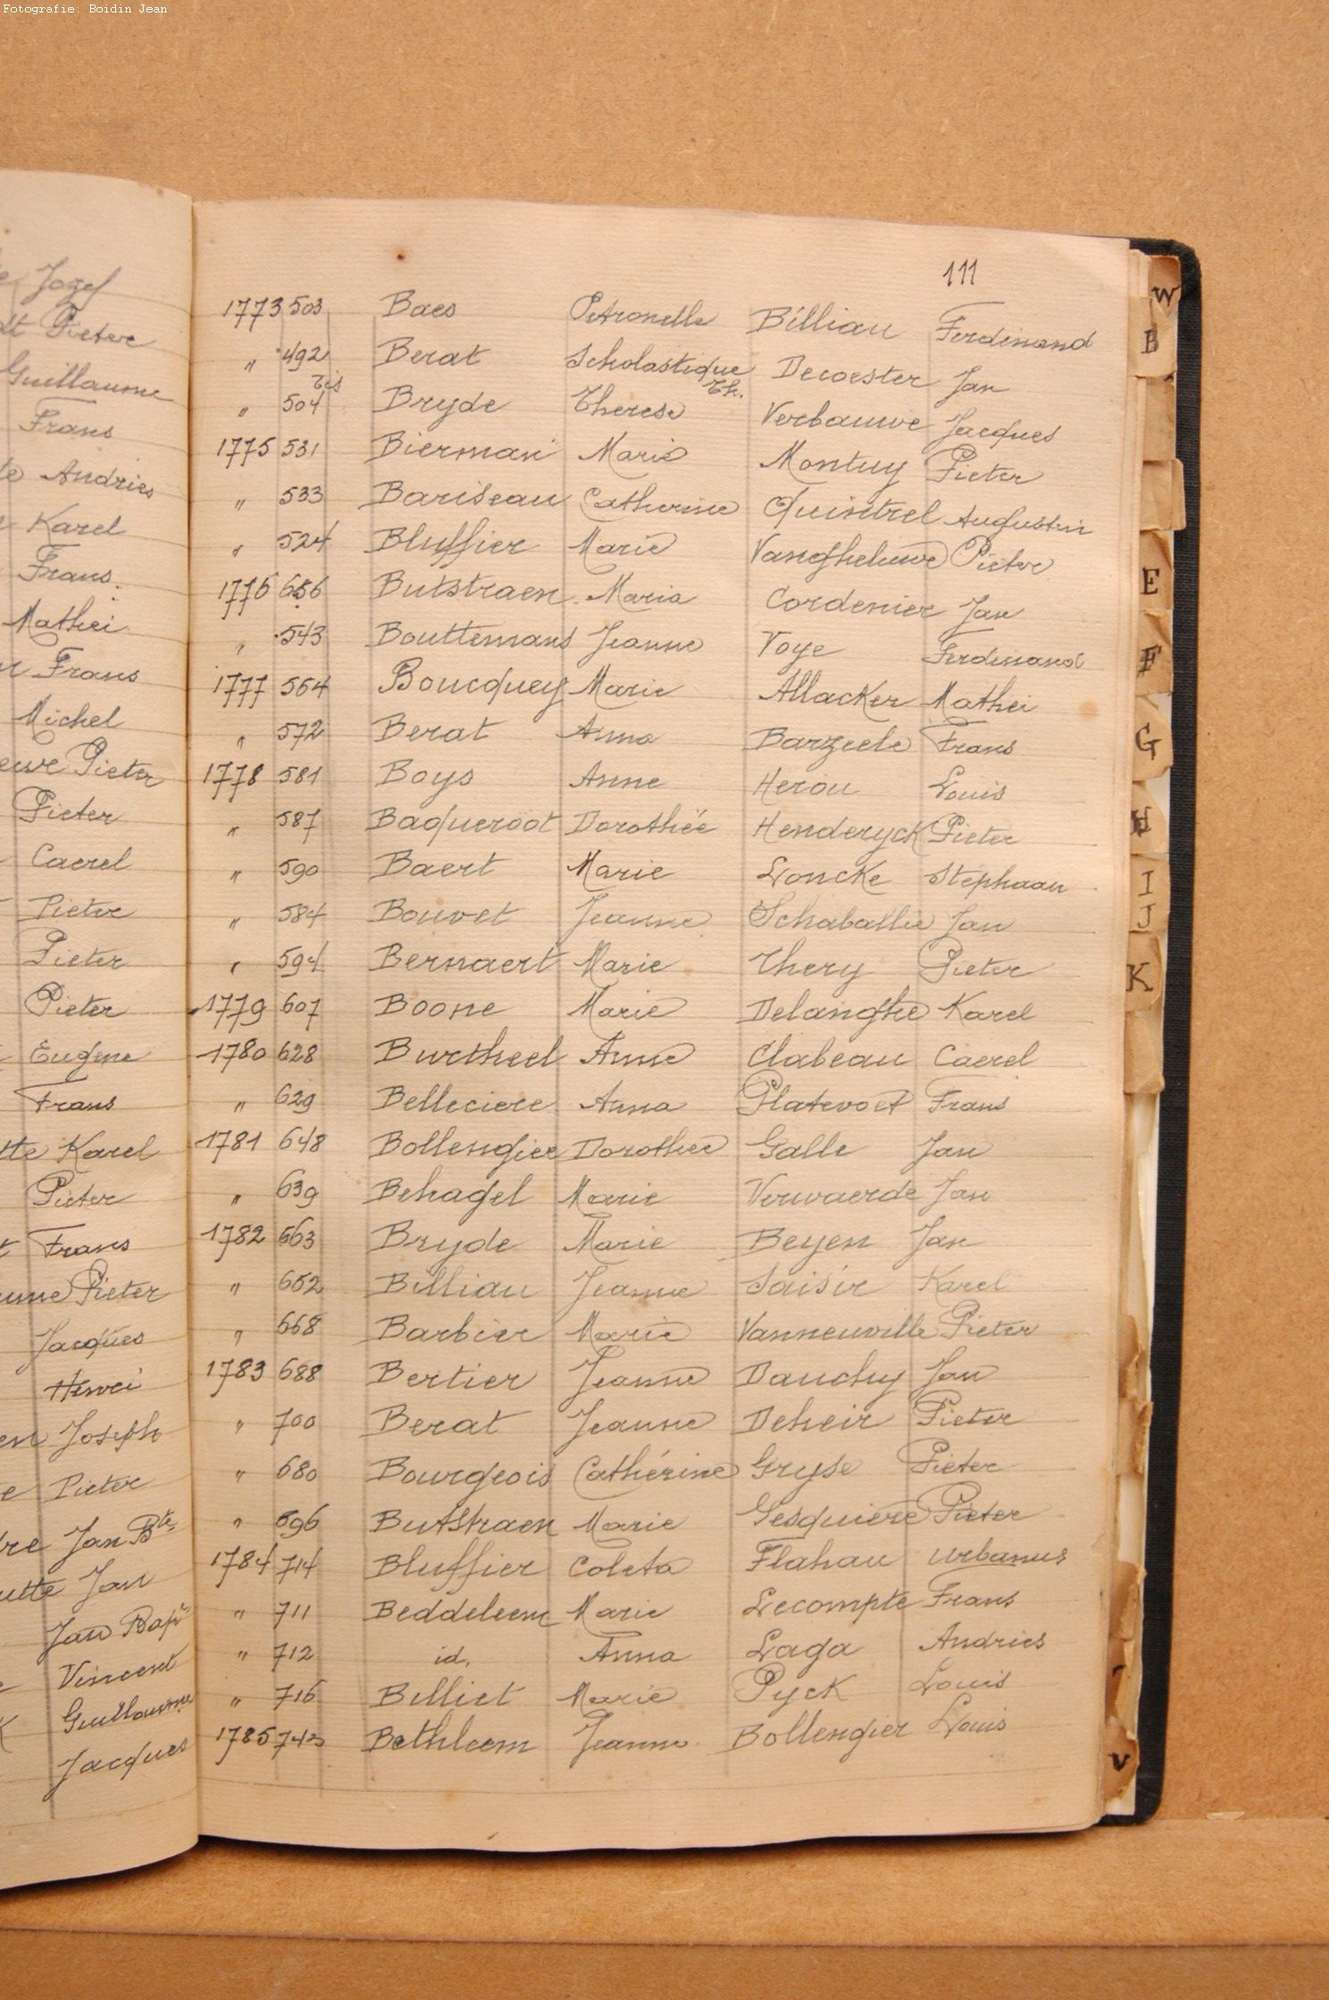 Fotografie: Boidin Jean
111
Jozef
Pieter
Guillaume
Frans
Andries
Karel
Frans.
Mathei
Frans
Michel
Pieter
Pieter
Caerel
Pieter
Pieter
Pieter
Eugene
Frans
Karel
Pieter
Frans
Pieter
Jacques
Henri
Joseph
Pieter
Jan Bte
Jan
Jan Bapt
Vincent
Guillaume
Jacques
1773 503 Baes Petronelle Billiau Ferdinand
" 492 Berat Scholastique Th. Decoester Jan
" 504 bis Bryde Therese Verbauwe Jacques
1775 531 Bierman Marie Montuy Pieter
" 533 Bariseau Catherine Quintrel Augustin
" 524 Bluffier Marie Vangheluwe Pieter
1776 656 Butstraen Maria Cordenier Jan
" 543 Bouttemans Jeanne Voye Ferdinand
1777 564 Boucquey Marie Allacker Mathei
" 572 Berat Anna Barzeele Frans
1778 581 Boys Anne Herou Louis
" 587 Baqueroot Dorothée Henderyck Pieter
" 590 Baert Marie Loncke Stephaan
" 584 Bouvet Jeanne Schaballie Jan
" 594 Bernaert Marie Thery Pieter
1779 607 Boone Marie Delanghe Karel
1780 628 Burtheel Anne Clabeau Caerel
" 629 Belleciere Anna Platevoet Frans
1781 648 Bollengier Dorothee Galle Jan
" 639 Behagel Marie Verwaerde Jan
1782 663 Bryde Marie Beyen Jan
" 652 Billiau Jeanne Saisir Karel
" 668 Barbier Marie Vanneuville Pieter
1783 688 Bertier Jeanne Dauchy Jan
" 700 Berat Jeanne Deheir Pieter
" 680 Bourgeois Cathérine Gryse Pieter
" 696 Butstraen Marie Gesquiere Pieter
1784 714 Bluffier Coleta Flahau Urbanus
" 711 Beddeleem Marie Lecompte Frans
" 712 id. Anna Laga Andries
" 716 Billiet Marie Pyck Louis
1785 743 Bethleem Jeanne Bollengier Louis
W
B
E
F
G
H
I
J
K
V